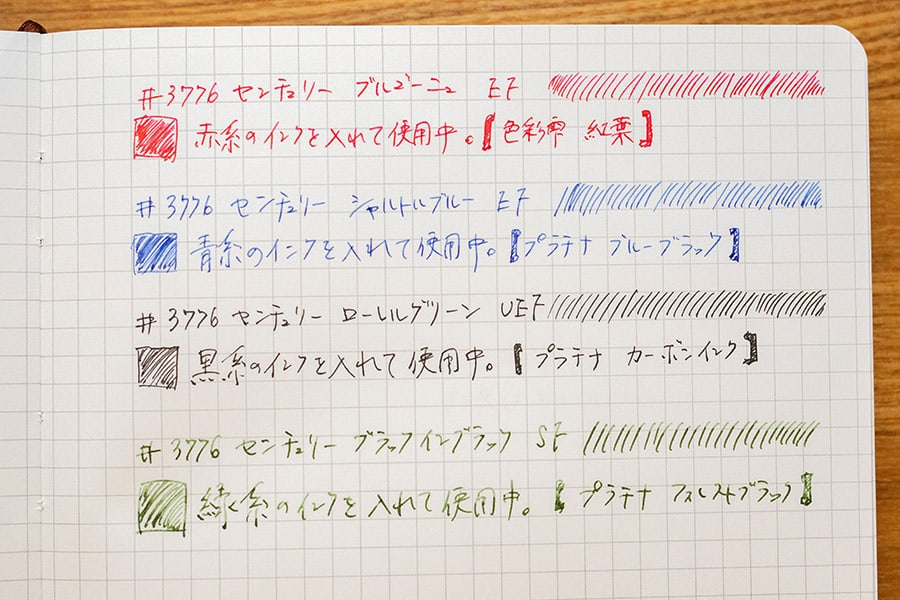 #3776 センチュリー ブルゴーニュ EF
赤系のインクを入れて使用中。【色彩雫 紅葉】
#3776 センチュリー シャルトルブルー EF
青系のインクを入れて使用中。【プラチナ ブルーブラック】
#3776 センチュリー ローレルグリーン UEF
黒系のインクを入れて使用中。【プラチナ カーボンインク】
#3776 センチュリー ブラックインブラック SF
緑系のインクを入れて使用中。【プラチナ フォレストブラック】